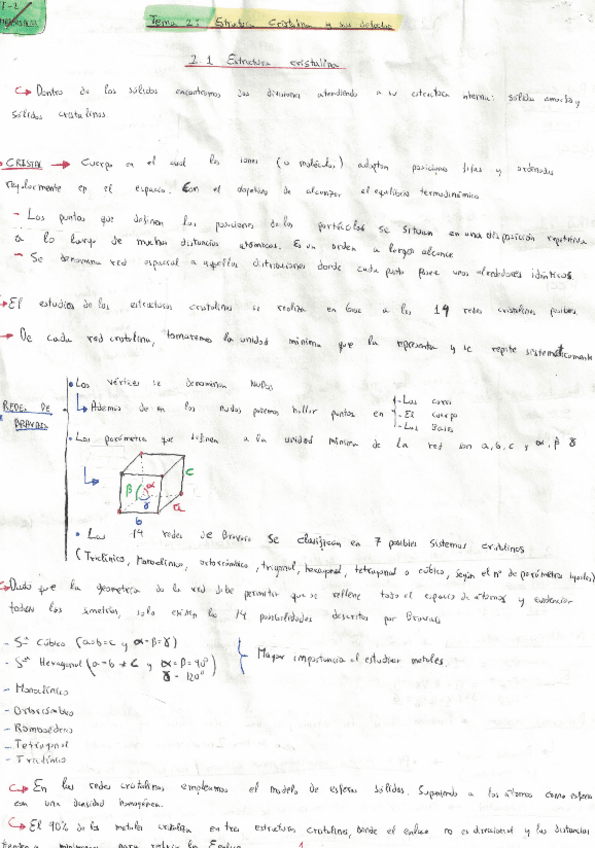 T-2
Tema 2: Estructura Cristalina y sus defectos
2.1 Estructura cristalina
Dentro de los sólidos encontramos dos divisiones atendiendo a su estructura interna: sólidos amorfos y
sólidos cristalinos
CRISTAL → Cuerpo en el cual los iones (o moléculas) adoptan posiciones fijas y ordenadas
regularmente en el espacio. Con el objetivo de alcanzar el equilibrio termodinámico
- Los puntos que definen las posiciones de las partículas se situan en una disposición repetitiva
a lo largo de muchas distancias atómicas. Es un orden a largo alcance
- Se denomina red espacial a aquellas distribuciones donde cada punto posee unos alrededores idénticos
El estudio de las estructuras cristalinas se realiza en base a las 14 redes cristalinas posibles.
De cada red cristalina, tomaremos la unidad mínima que la representa y se repite sistemáticamente
REDES DE
BRAVAIS
• Los vértices se denominan Nudos
Ademas de en los nudos podemos hallar puntos en
- Las caras
- El cuerpo
- Las bases
• Los parámetros que definen a la unidad mínima de la red son a, b, c y α, β γ
β α γ c a b
• Las 14 redes de Bravais se clasifican en 7 posibles sistemas cristalinos
(Triclínico, Monoclínico, ortorrómbico, trigonal, hexagonal, tetragonal o cúbico, según el nº de parámetros iguales)
Dado que la geometria de la red debe permitir que se rellene todo el espacio de átomos y evidencien
todas las simetrías, solo existen las 14 posibilidades descritas por Bravais
- Sª Cúbico (a=b=c y α=β=γ)
- Sª Hexagonal (a=b≠c y α=β=90°
γ=120°)
Mayor importancia al estudiar metales.
- Monoclínico
- Ortorrómbico
- Romboédrico
- Tetragonal
- Triclínico
En las redes cristalinas empleamos el modelo de esferas sólidas. Suponiendo a los átomos como esferas
con una densidad homogénea.
El 90% de los metales cristaliza en tres estructuras cristalinas, donde el enlace no es direccional y las distancias